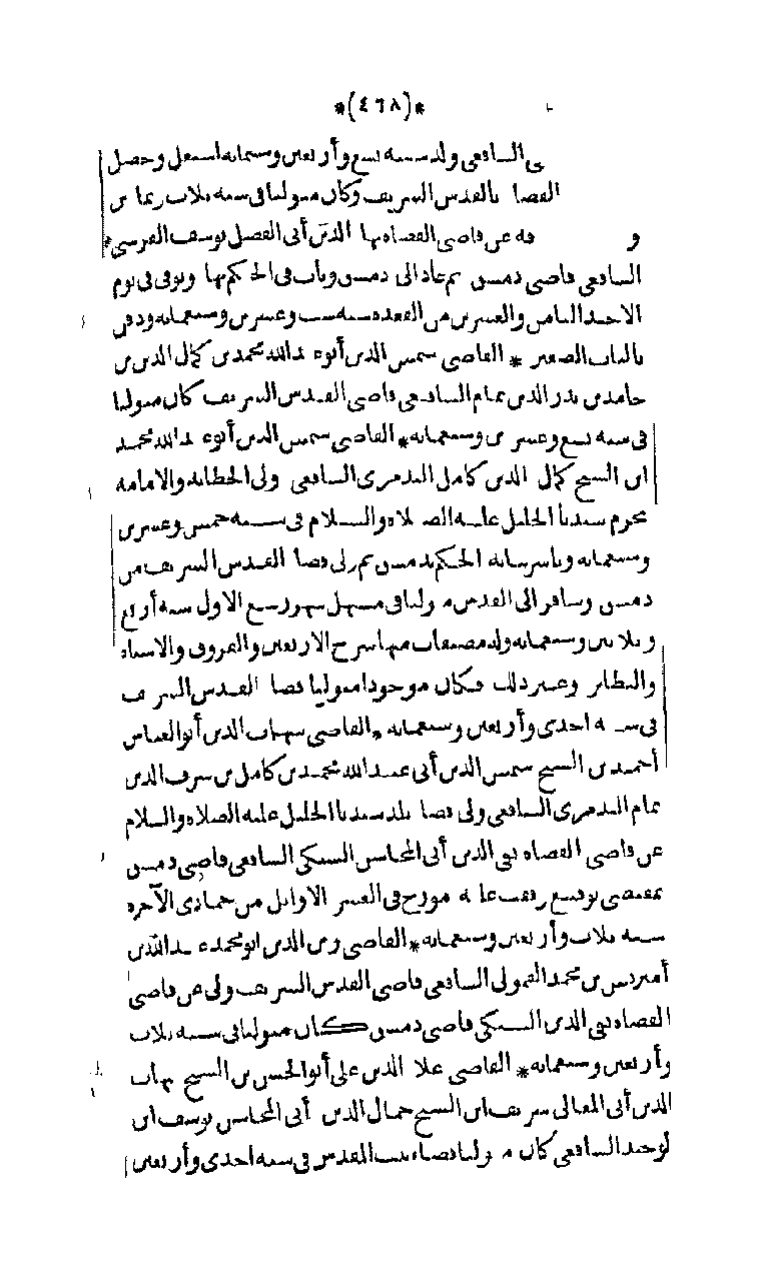 *(٤٦٨)*
الشافعى ولد سنة تسع وأربعين وستمائة اشتغل وحصل
القضا بالقدس الشريف وكان متوليا فى سنة ثلاث
عن قاضى القضاة بها الدين أبى الفضل يوسف القرشى
الشافعى قاضى دمشق ثم عاد الى دمشق وناب فى الحكم بها وتوفى فى يوم
الاحد الثامن والعشرين من القعدة سنة ست وعشرين وسبعمائة ودفن
بالباب الصغير * القاضى شمس الدين أبو عبد الله محمد بن كمال الدين بن
حامد بن بدر الدين تمام الشافعى قاضى القدس الشريف كان متوليا
فى سنة تسع وعشرين وسبعمائة * القاضى شمس الدين أبو عبد الله محمد
ابن الشيخ كمال الدين كامل التدمرى الشافعى ولى الخطابة والامامة
بحرم سيدنا الخليل عليه الصلاة والسلام فى سنة خمس وعشرين
وسبعمائة وباشر نيابة الحكم بدمشق ثم ولى قضا القدس الشريف من
دمشق وسافر الى القدس متوليا فى مستهل شهر ربيع الاول سنة أربع
وثلاثين وسبعمائة وله مصنفات منها شرح الاربعين والفروق والاشباه
والنظائر وغير ذلك فكان موجودا متوليا قضا القدس الشريف
فى سنة احدى وأربعين وسبعمائة * القاضى شهاب الدين أبو العباس
أحمد بن الشيخ شمس الدين أبى عبد الله محمد بن كامل بن شرف الدين
تمام التدمرى الشافعى ولى قضا بلد سيدنا الخليل عليه الصلاة والسلام
عن قاضى القضاة تقى الدين أبى المحاسن السبكى الشافعى قاضى دمشق
بمقتضى توقيع وقفت عليه مؤرخ فى العشر الاوائل من جمادى الآخرة
سنة ثلاث وأربعين وسبعمائة * القاضى زين الدين ابو محمد عبد الله بن
محمد القمولى الشافعى قاضى القدس الشريف ولى عن قاضى
القضاة تقى الدين السبكى قاضى دمشق كان متوليا فى سنة ثلاث
وأربعين وسبعمائة * القاضى علا الدين على أبو الحسن بن الشيخ شهاب
الدين أبى المعالى شريف ابن الشيخ جمال الدين أبى المحاسن يوسف ابن
الوحيد الشافعى كان متوليا قضاء بيت المقدس فى سنة احدى وأربعين